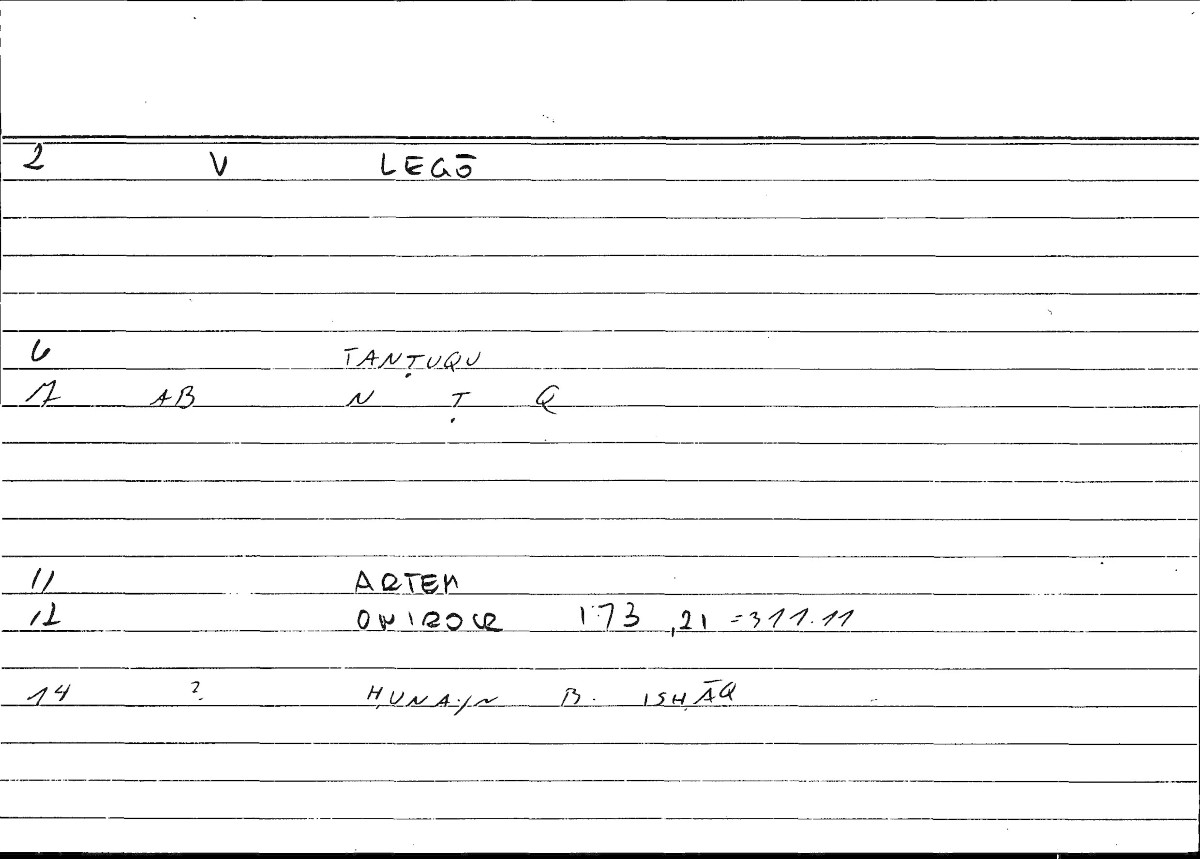 2 V LEGŌ
6 TANṬUQU
7 AB N Ṭ Q
11 ARTEM
12 ONIROCR 173,21 =311.11
14 ? ḤUNAYN B. ISḤĀQ